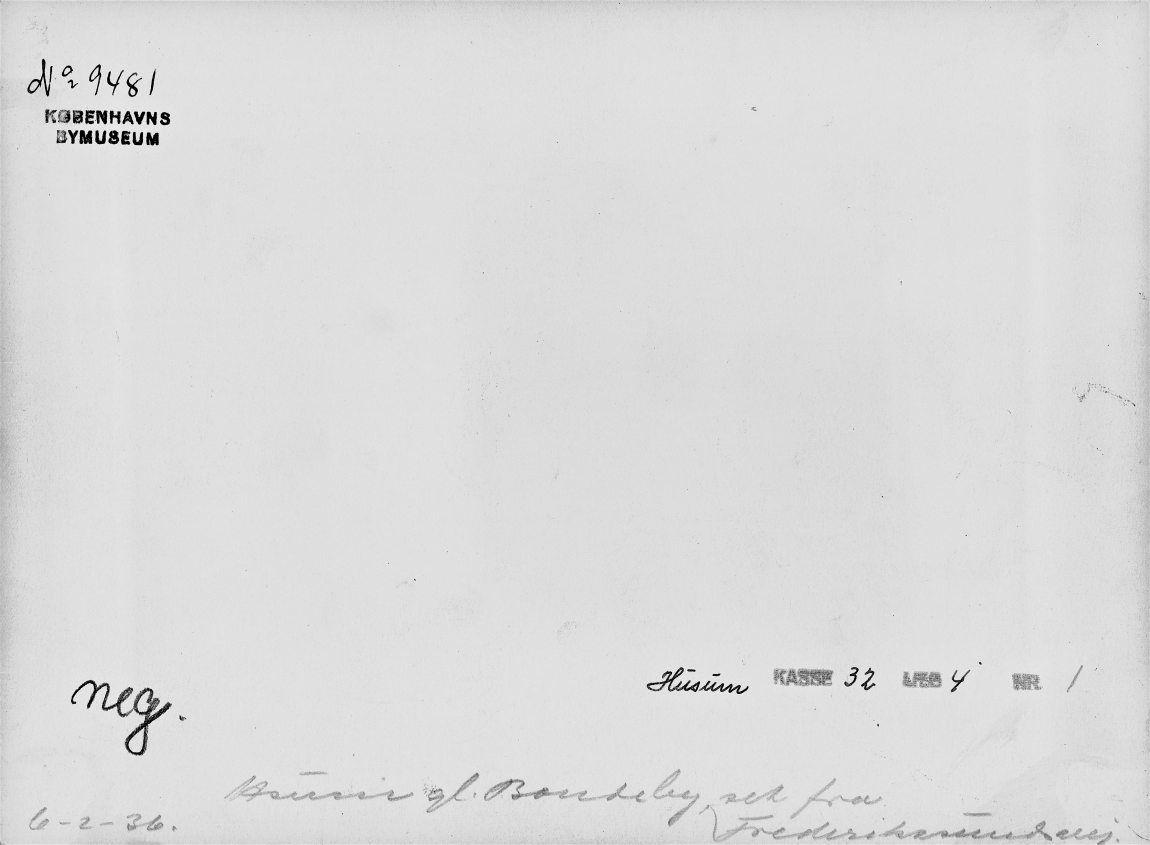 No 9481
KØBENHAVNS
BYMUSEUM
Husum KASSE 32 LÆG 4 NR. 1
neg.
Husum gl. Bondeby, set fra
Frederikssundsvej.
6-2-36.